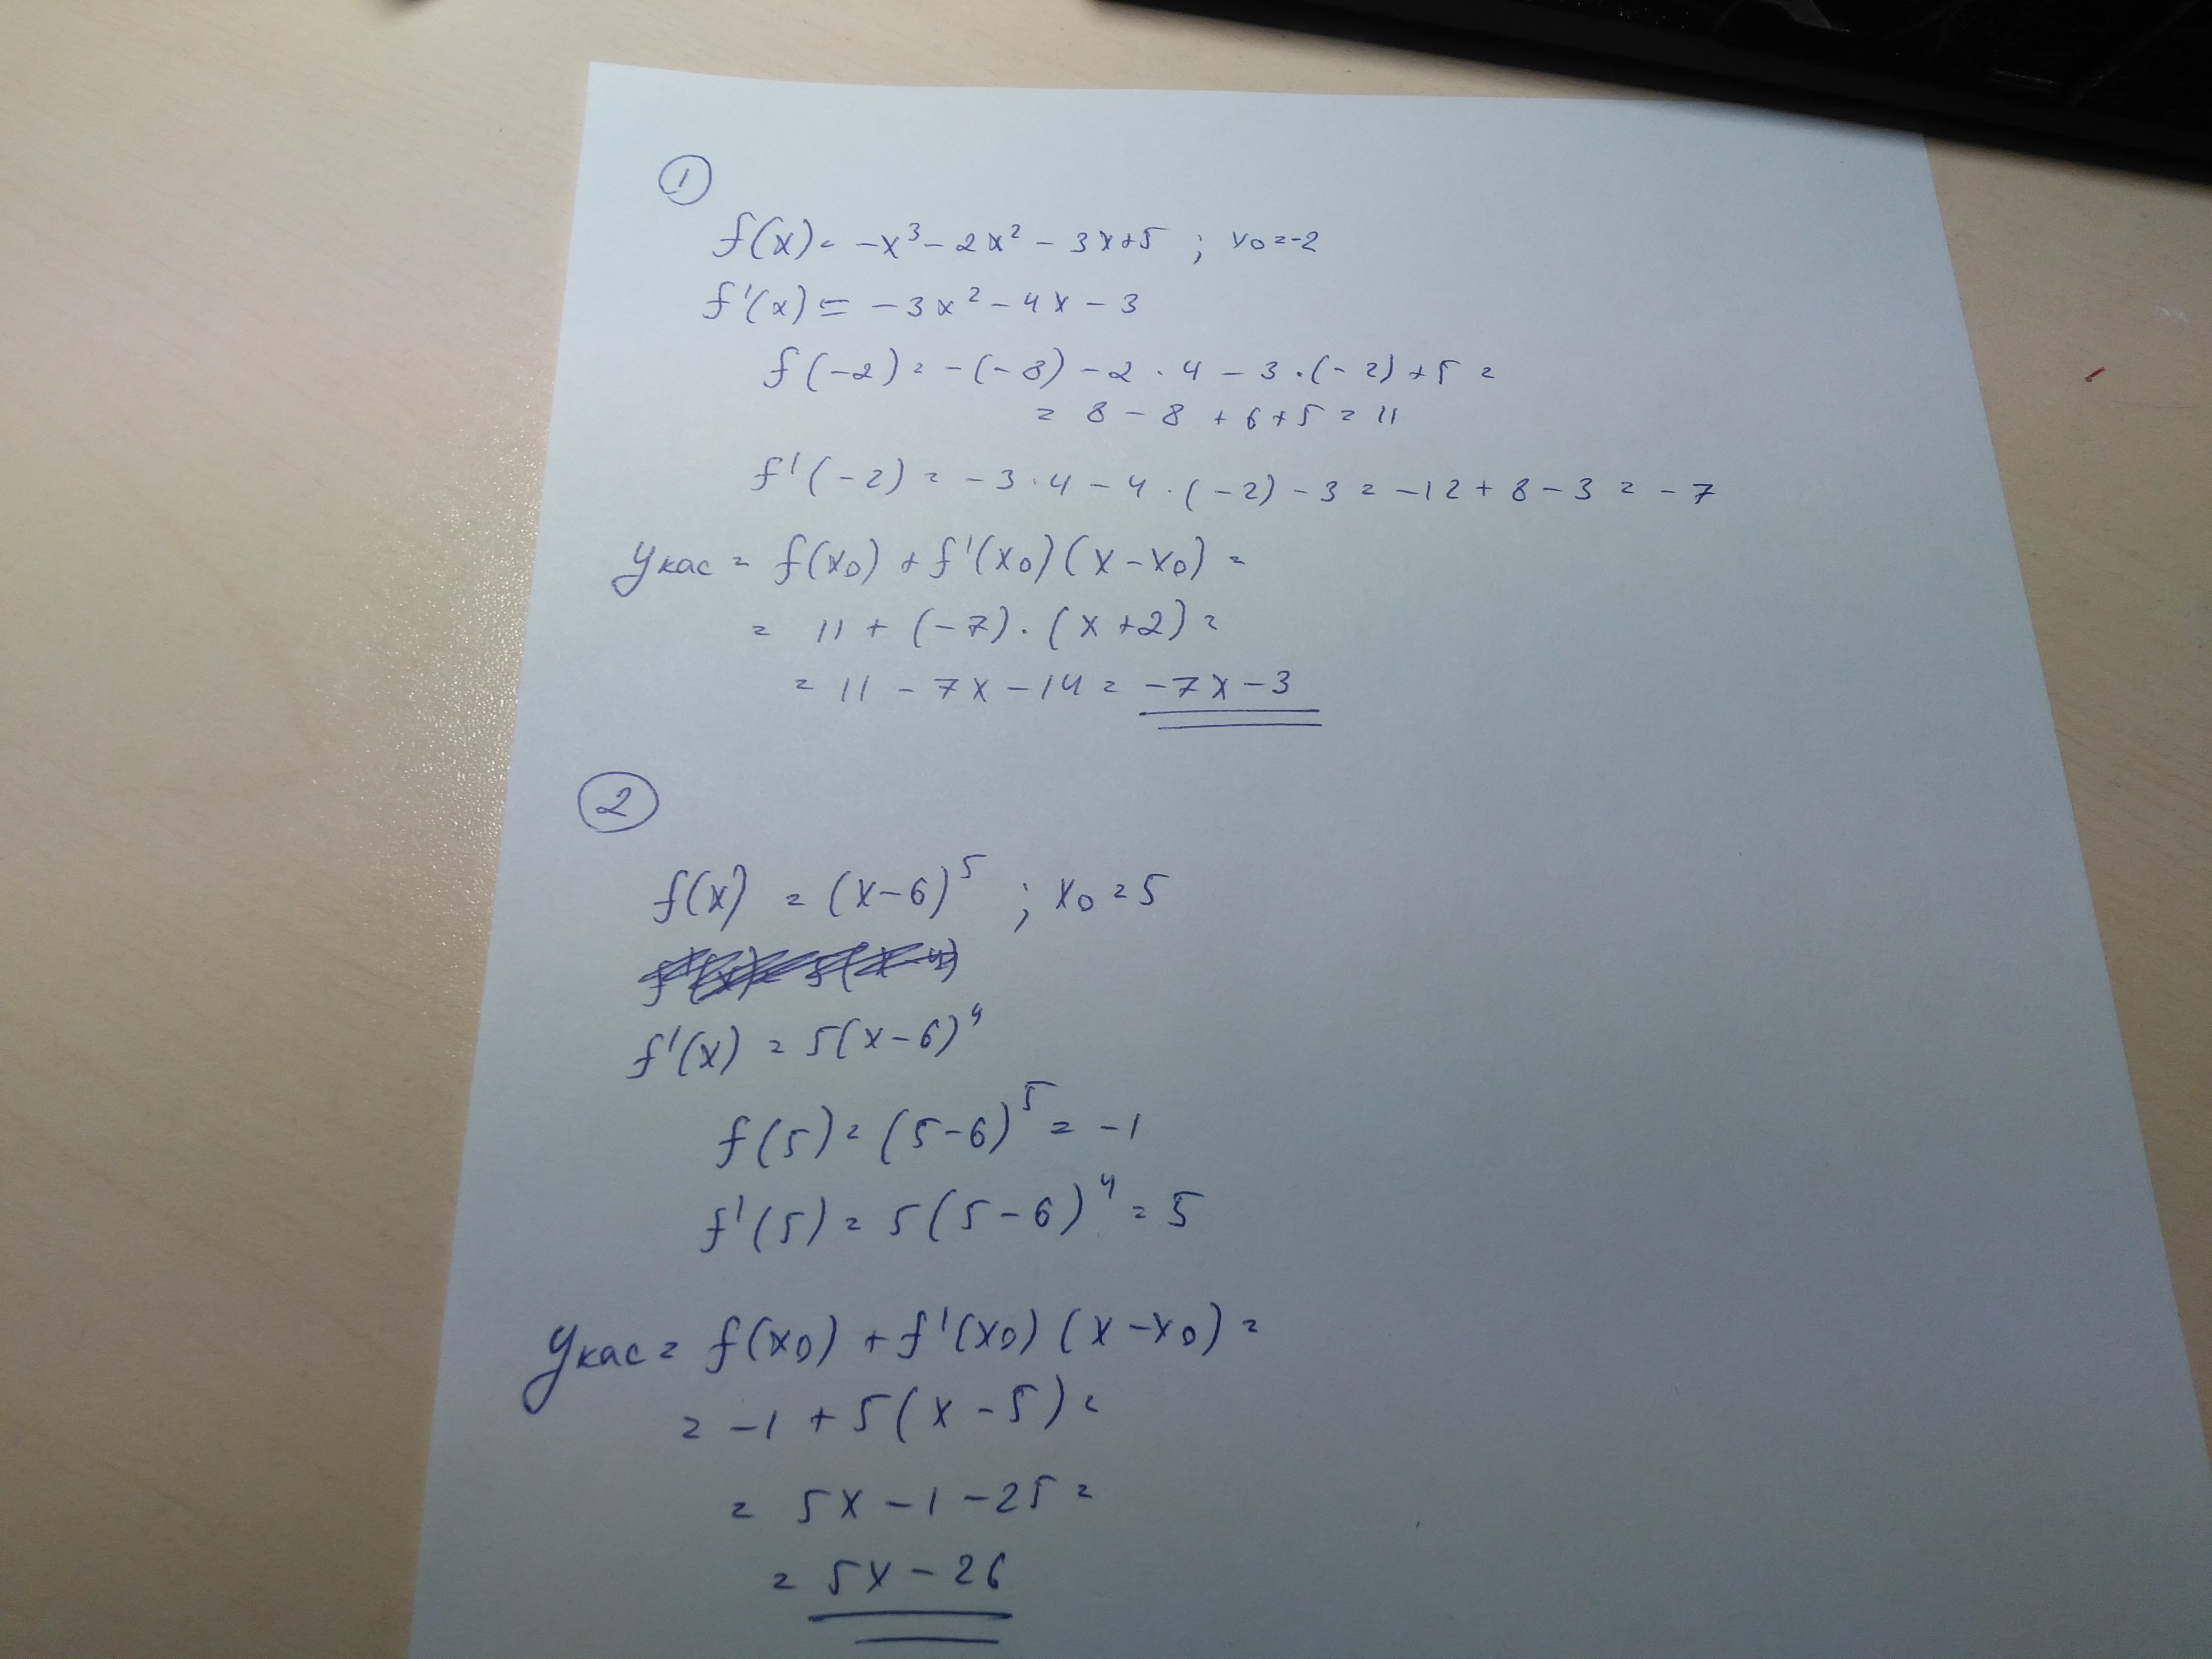 1
f(x) = -x³ - 2x² - 3x + 5 ; x₀ = -2
f'(x) = -3x² - 4x - 3
f(-2) = -(-8) - 2 · 4 - 3 · (-2) + 5 =
= 8 - 8 + 6 + 5 = 11
f'(-2) = -3 · 4 - 4 · (-2) - 3 = -12 + 8 - 3 = -7
yкас = f(x₀) + f'(x₀)(x - x₀) =
= 11 + (-7) · (x + 2) =
= 11 - 7x - 14 = -7x - 3
2
f(x) = (x-6)⁵ ; x₀ = 5
f'(x) = 5(x-6)⁴
f(5) = (5-6)⁵ = -1
f'(5) = 5(5-6)⁴ = 5
yкас = f(x₀) + f'(x₀)(x - x₀) =
= -1 + 5(x - 5) =
= 5x - 1 - 25 =
= 5x - 26